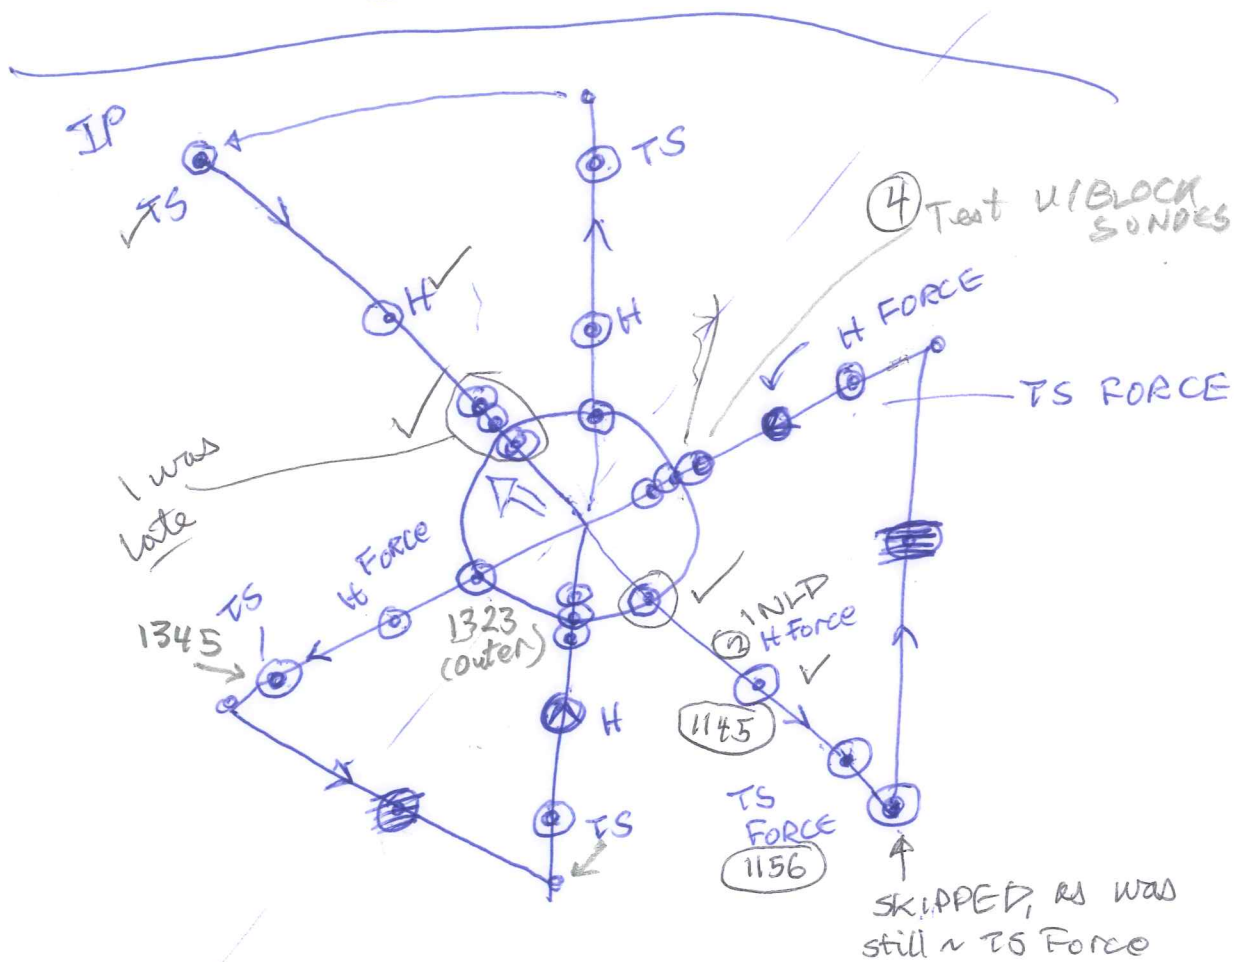 IP
TS
TS
4 Test w/BLOCK
SONDES
H FORCE
H
H
TS FORCE
I was
late
H FORCE
TS
1345
1323
(outer)
2 INLD
H Force
H
1145
TS
TS
FORCE
1156
SKIPPED, as was
still ~ TS Force